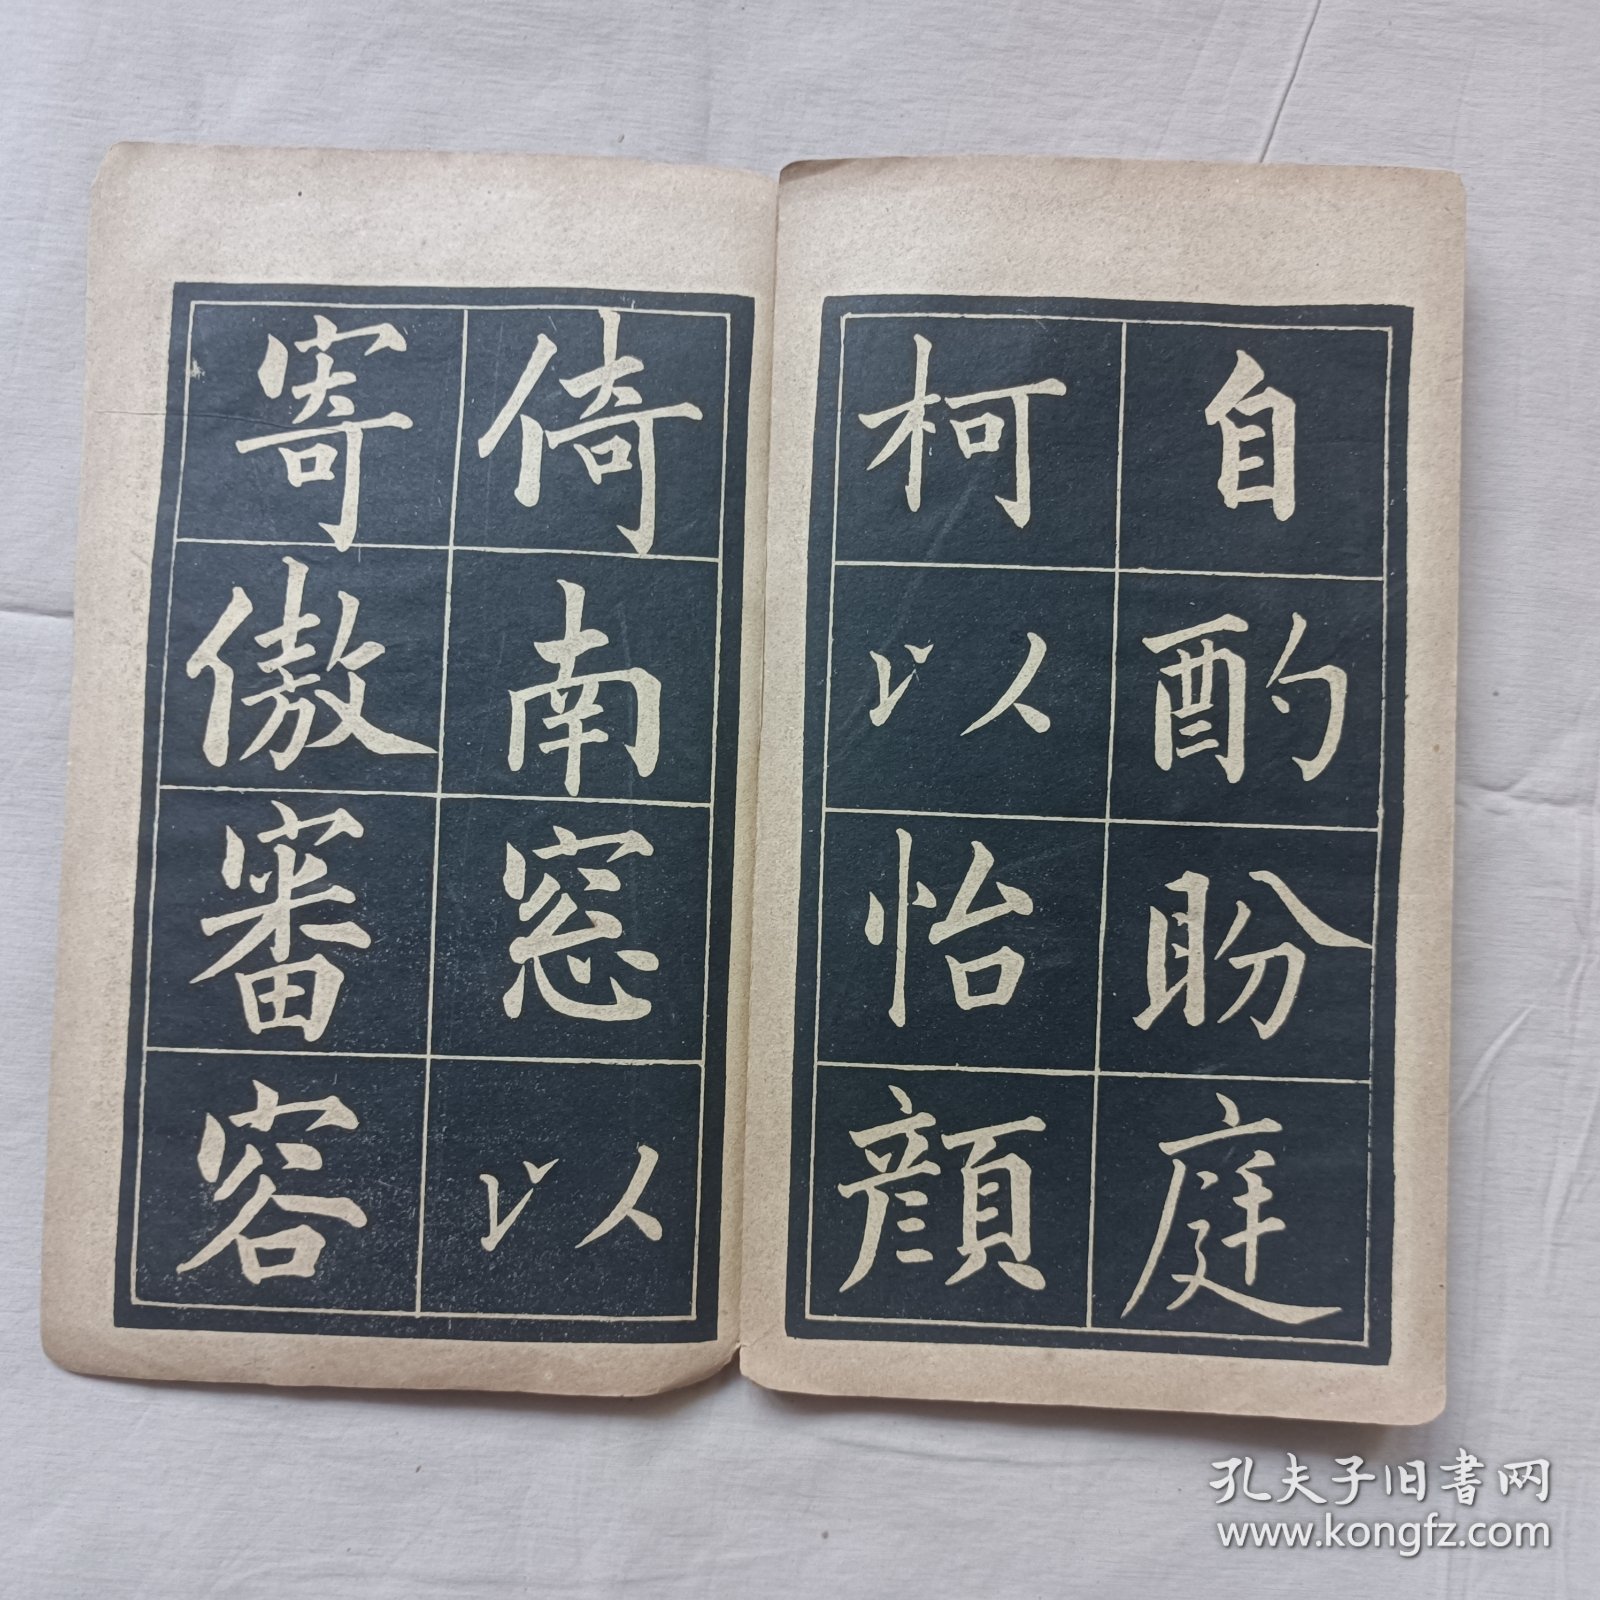 自酌盼庭
柯以怡顔
倚南窓以
寄傲審容
孔夫子旧书网
www.kongfz.com